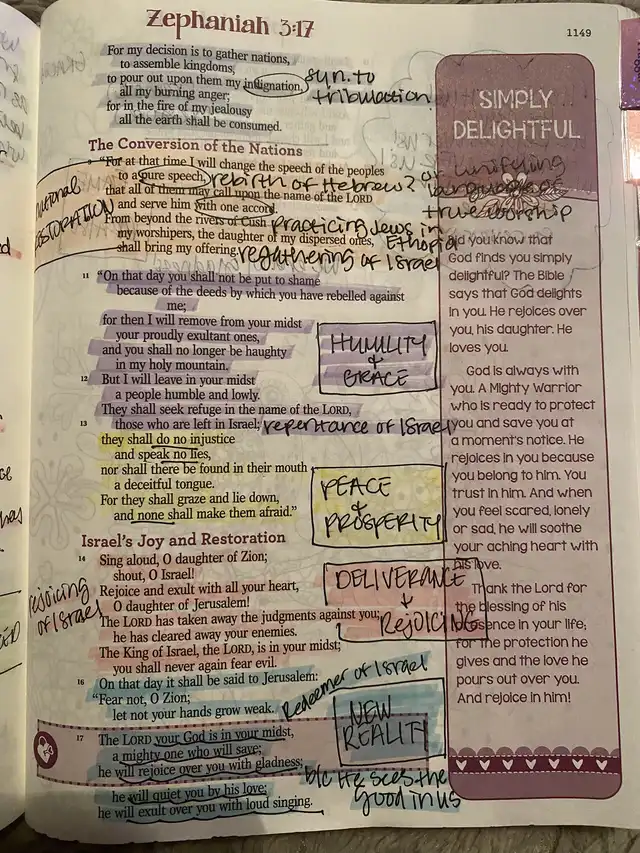 Zephaniah 3:17
1149
For my decision is to gather nations,
to assemble kingdoms,
to pour out upon them my indignation,
all my burning anger;
for in the fire of my jealousy
all the earth shall be consumed.
syn. to
tribulation
The Conversion of the Nations
9 "For at that time I will change the speech of the peoples
to a pure speech,
that all of them may call upon the name of the LORD
and serve him with one accord.
From beyond the rivers of Cush
my worshipers, the daughter of my dispersed ones,
shall bring my offering.
rebirth of Hebrew? or unifying
language of
true worship
practicing Jews in
Ethopia
regathering of Israel
national
RESTORATION
11 "On that day you shall not be put to shame
because of the deeds by which you have rebelled against
me;
for then I will remove from your midst
your proudly exultant ones,
and you shall no longer be haughty
in my holy mountain.
12 But I will leave in your midst
a people humble and lowly.
They shall seek refuge in the name of the LORD,
13 those who are left in Israel;
they shall do no injustice
and speak no lies,
nor shall there be found in their mouth
a deceitful tongue.
For they shall graze and lie down,
and none shall make them afraid."
HUMILITY
&
GRACE
repentance of Israel
PEACE
&
PROSPERITY
Israel's Joy and Restoration
14 Sing aloud, O daughter of Zion;
shout, O Israel!
Rejoice and exult with all your heart,
O daughter of Jerusalem!
15 The LORD has taken away the judgments against you;
he has cleared away your enemies.
The King of Israel, the LORD, is in your midst;
you shall never again fear evil.
16 On that day it shall be said to Jerusalem:
"Fear not, O Zion;
let not your hands grow weak.
17 The LORD your God is in your midst,
a mighty one who will save;
he will rejoice over you with gladness;
he will quiet you by his love;
he will exult over you with loud singing.
rejoicing
of Israel
DELIVERANCE
&
REJOICING
Redeemer of Israel
NEW
REALITY
b/c He sees the
good in us
SIMPLY
DELIGHTFUL
Did you know that
God finds you simply
delightful? The Bible
says that God delights
in you. He rejoices over
you, his daughter. He
loves you.
God is always with
you. A Mighty Warrior
who is ready to protect
you and save you at
a moment's notice. He
rejoices in you because
you belong to him. You
trust in him. And when
you feel scared, lonely
or sad, he will soothe
your aching heart with
his love.
Thank the Lord for
the blessing of his
presence in your life;
for the protection he
gives and the love he
pours out over you.
And rejoice in him!